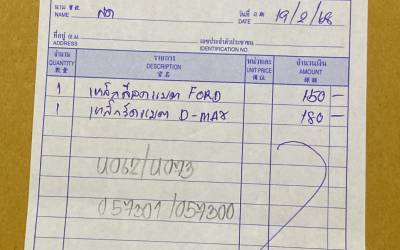 นาม 宝號 สด วันที่ 日期 19/2/68
NAME DATE
ที่อยู่ 住址 เลขประจำตัวประชาชน
ADDRESS IDENTIFICATION NO.
จำนวน รายการ หน่วยละ จำนวนเงิน
QUANTITY DESCRIPTION UNIT PRICE AMOUNT
數量 貨名 價銀 銀額
1 เหล็กรัดแบต FORD 150 —
1 เหล็กรัดแบต D-MAX 180 —
4062/4073
057301/057300